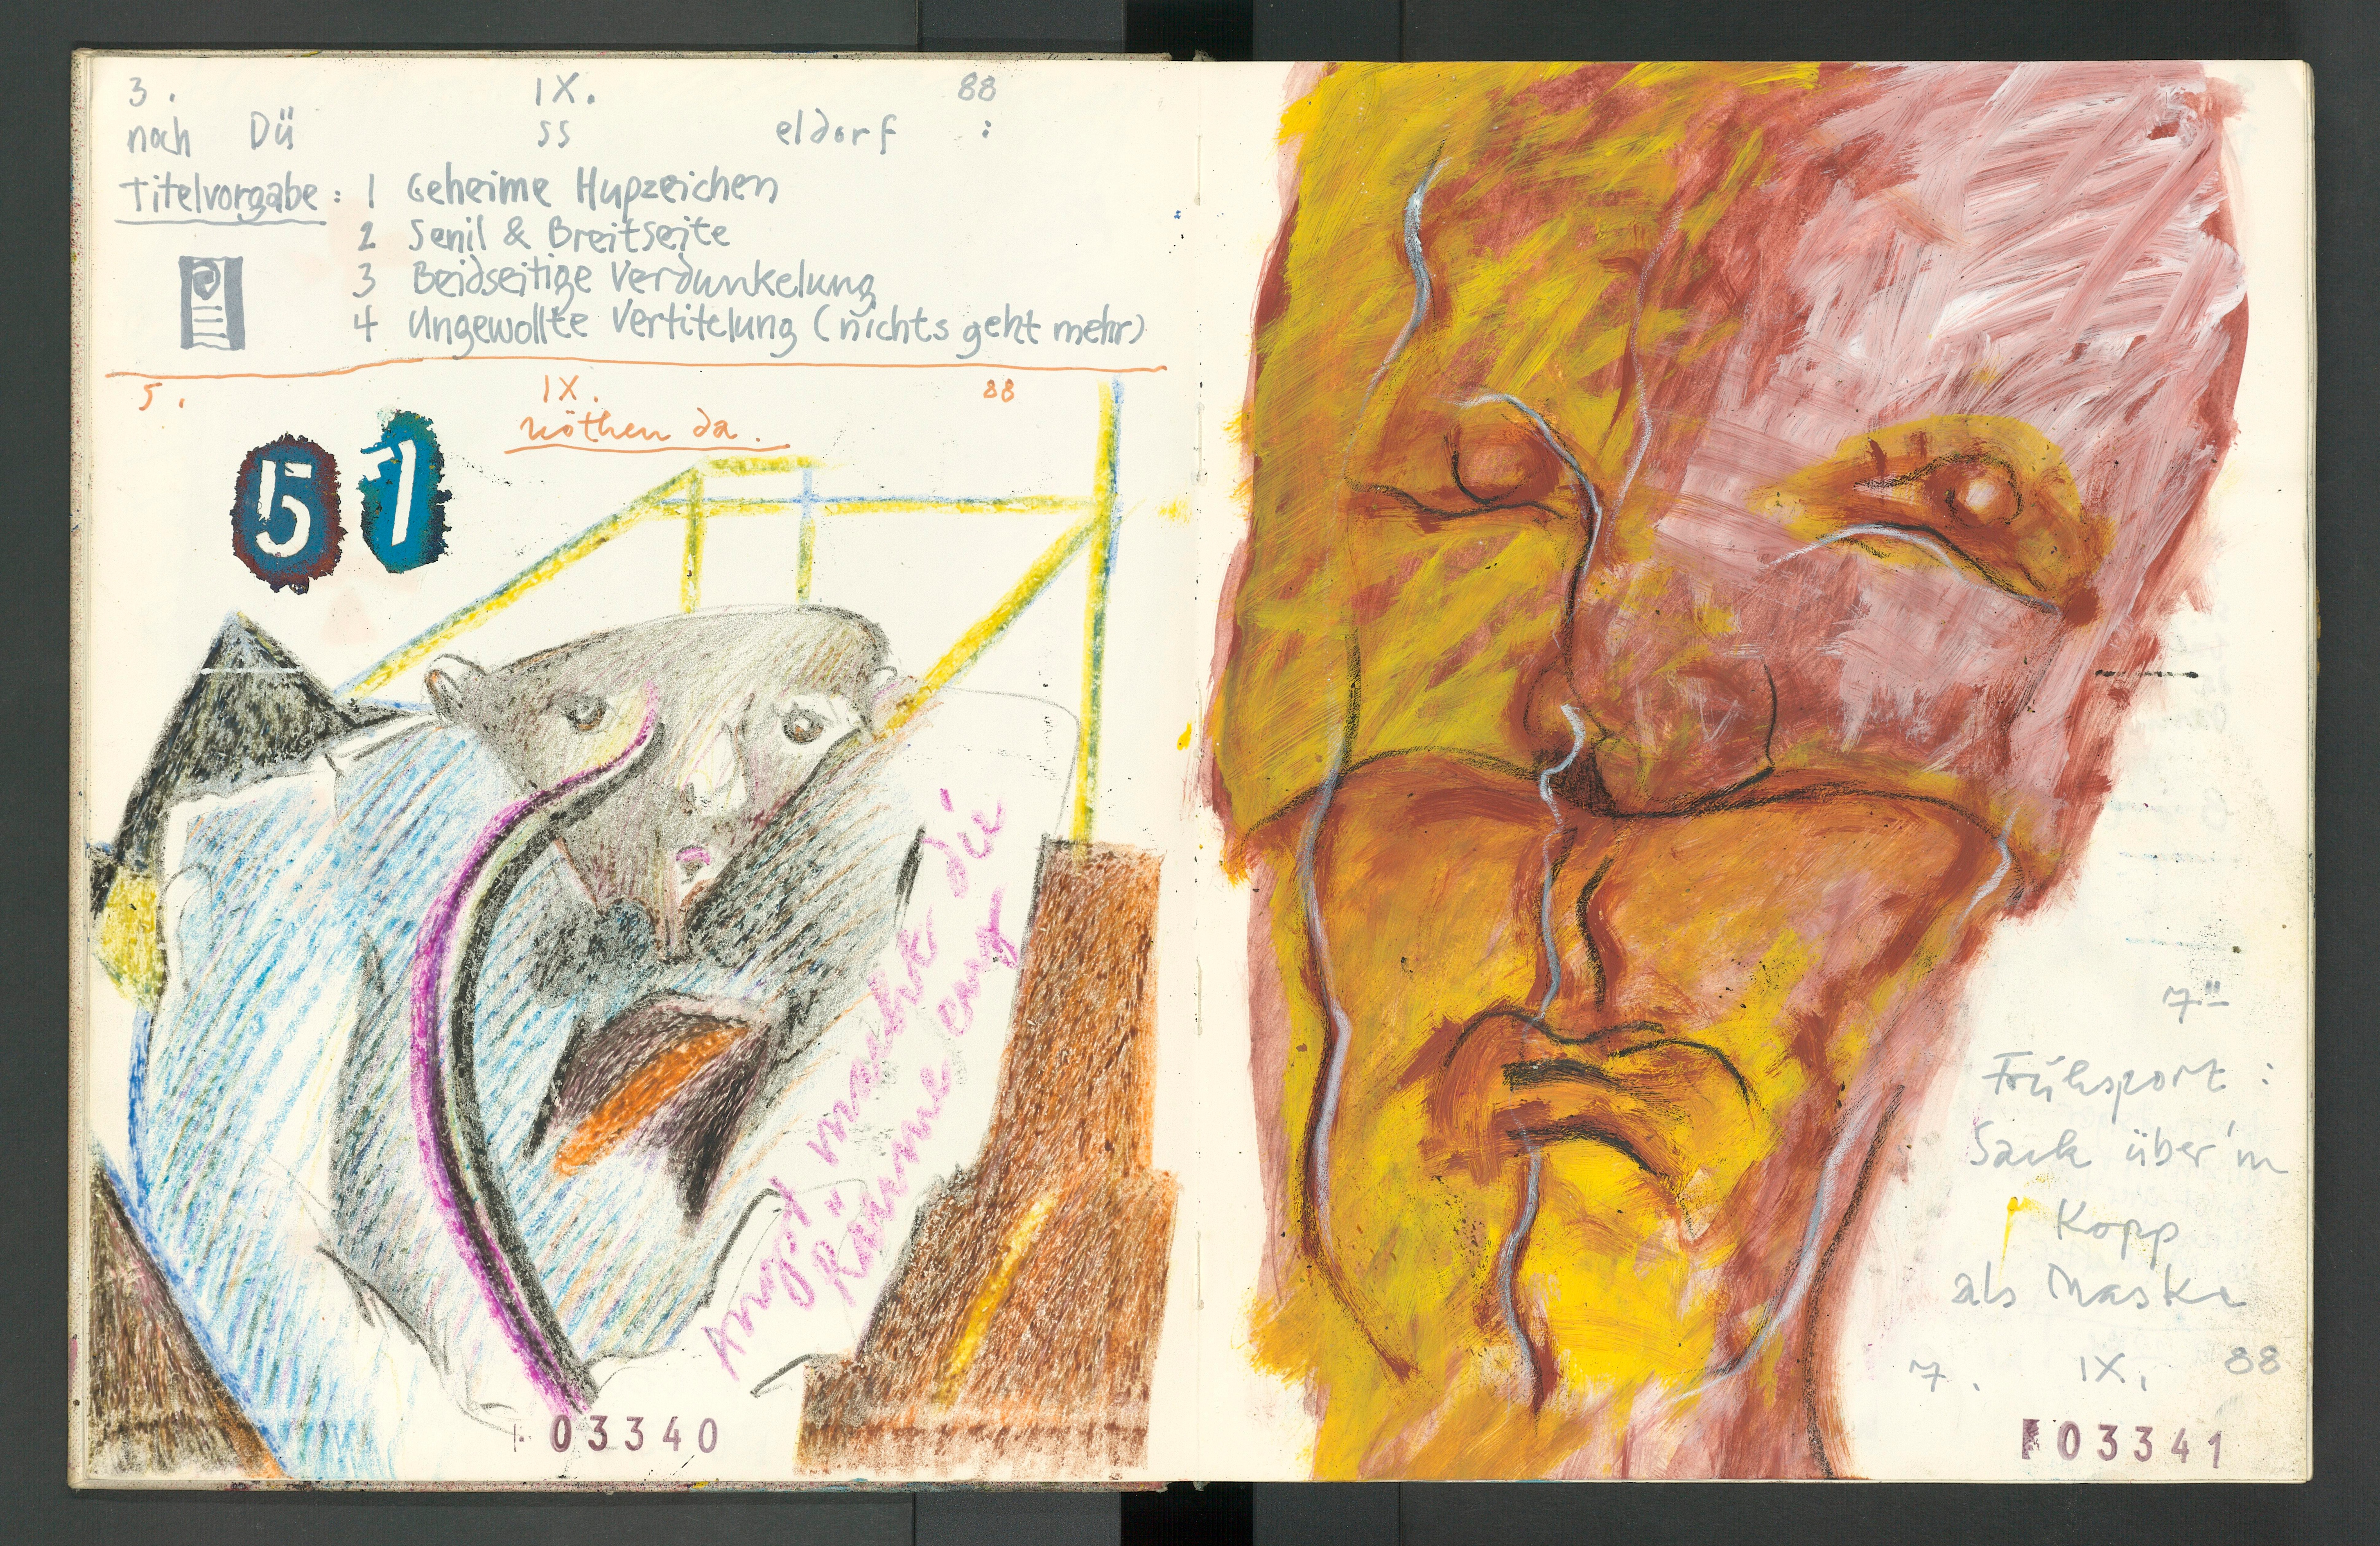 3. IX. 88
noch Dü ss eldorf :
Titelvorgabe: 1 Geheime Hupzeichen
2 Senil & Breitseite
3 Beidseitige Verdunkelung
4 Ungewollte Vertitelung (nichts geht mehr)
5. IX. 88
da.
51
Angst macht die
Räume eng
03340
Frühsport :
Sack über'm
Kopp
als Maske
7. IX. 88
03341